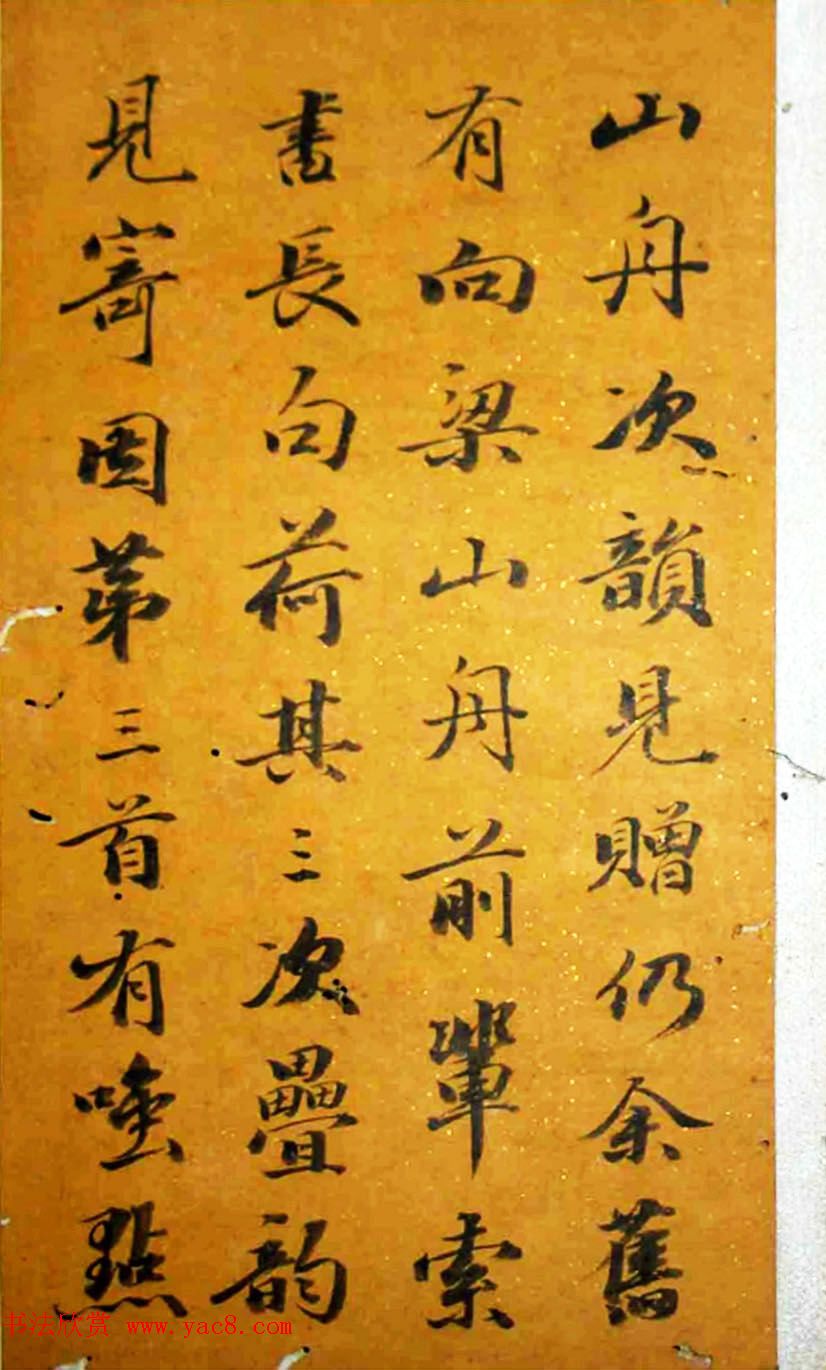 山舟次韻見贈仍余舊
有向梁山舟前輩索
書長句荷其三次疊韵
見寄因第三首有嗤點
书法欣赏 www.yac8.com